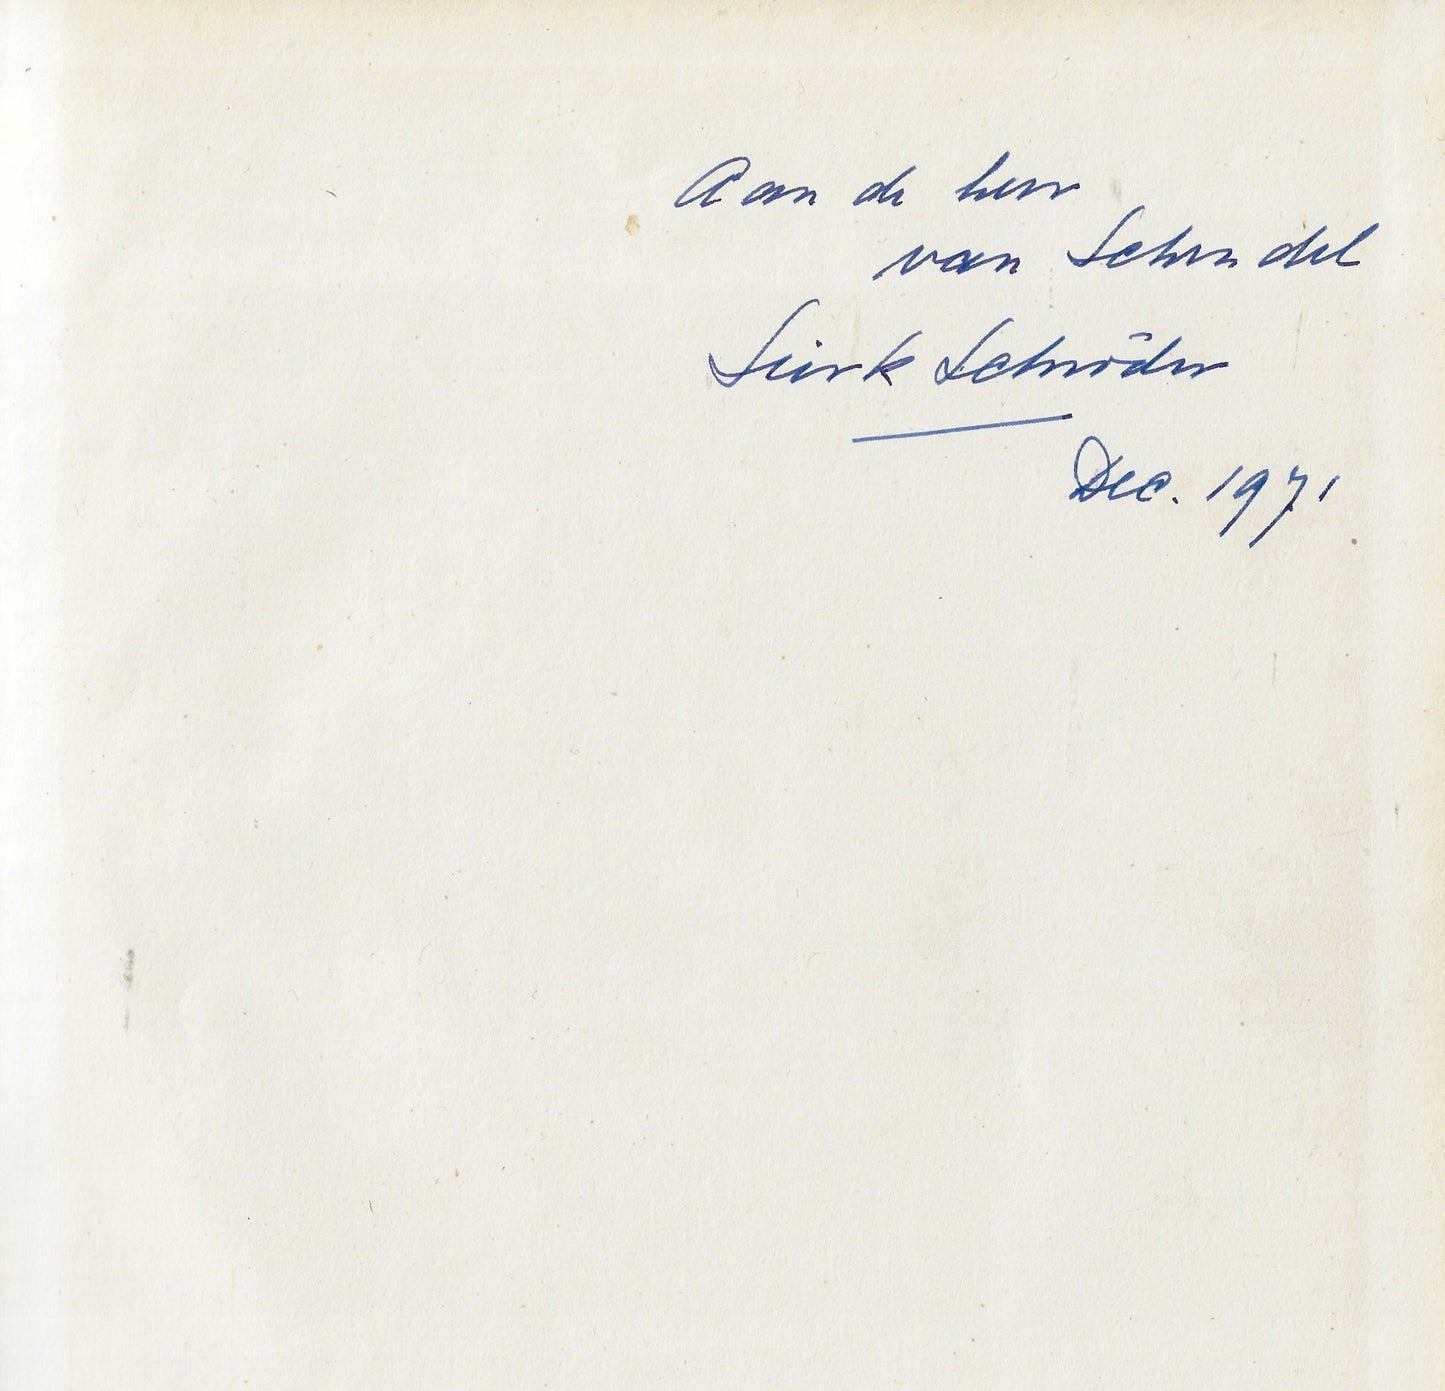 Aan de heer
van Schendel
Sierk Schröder
Dec. 1971